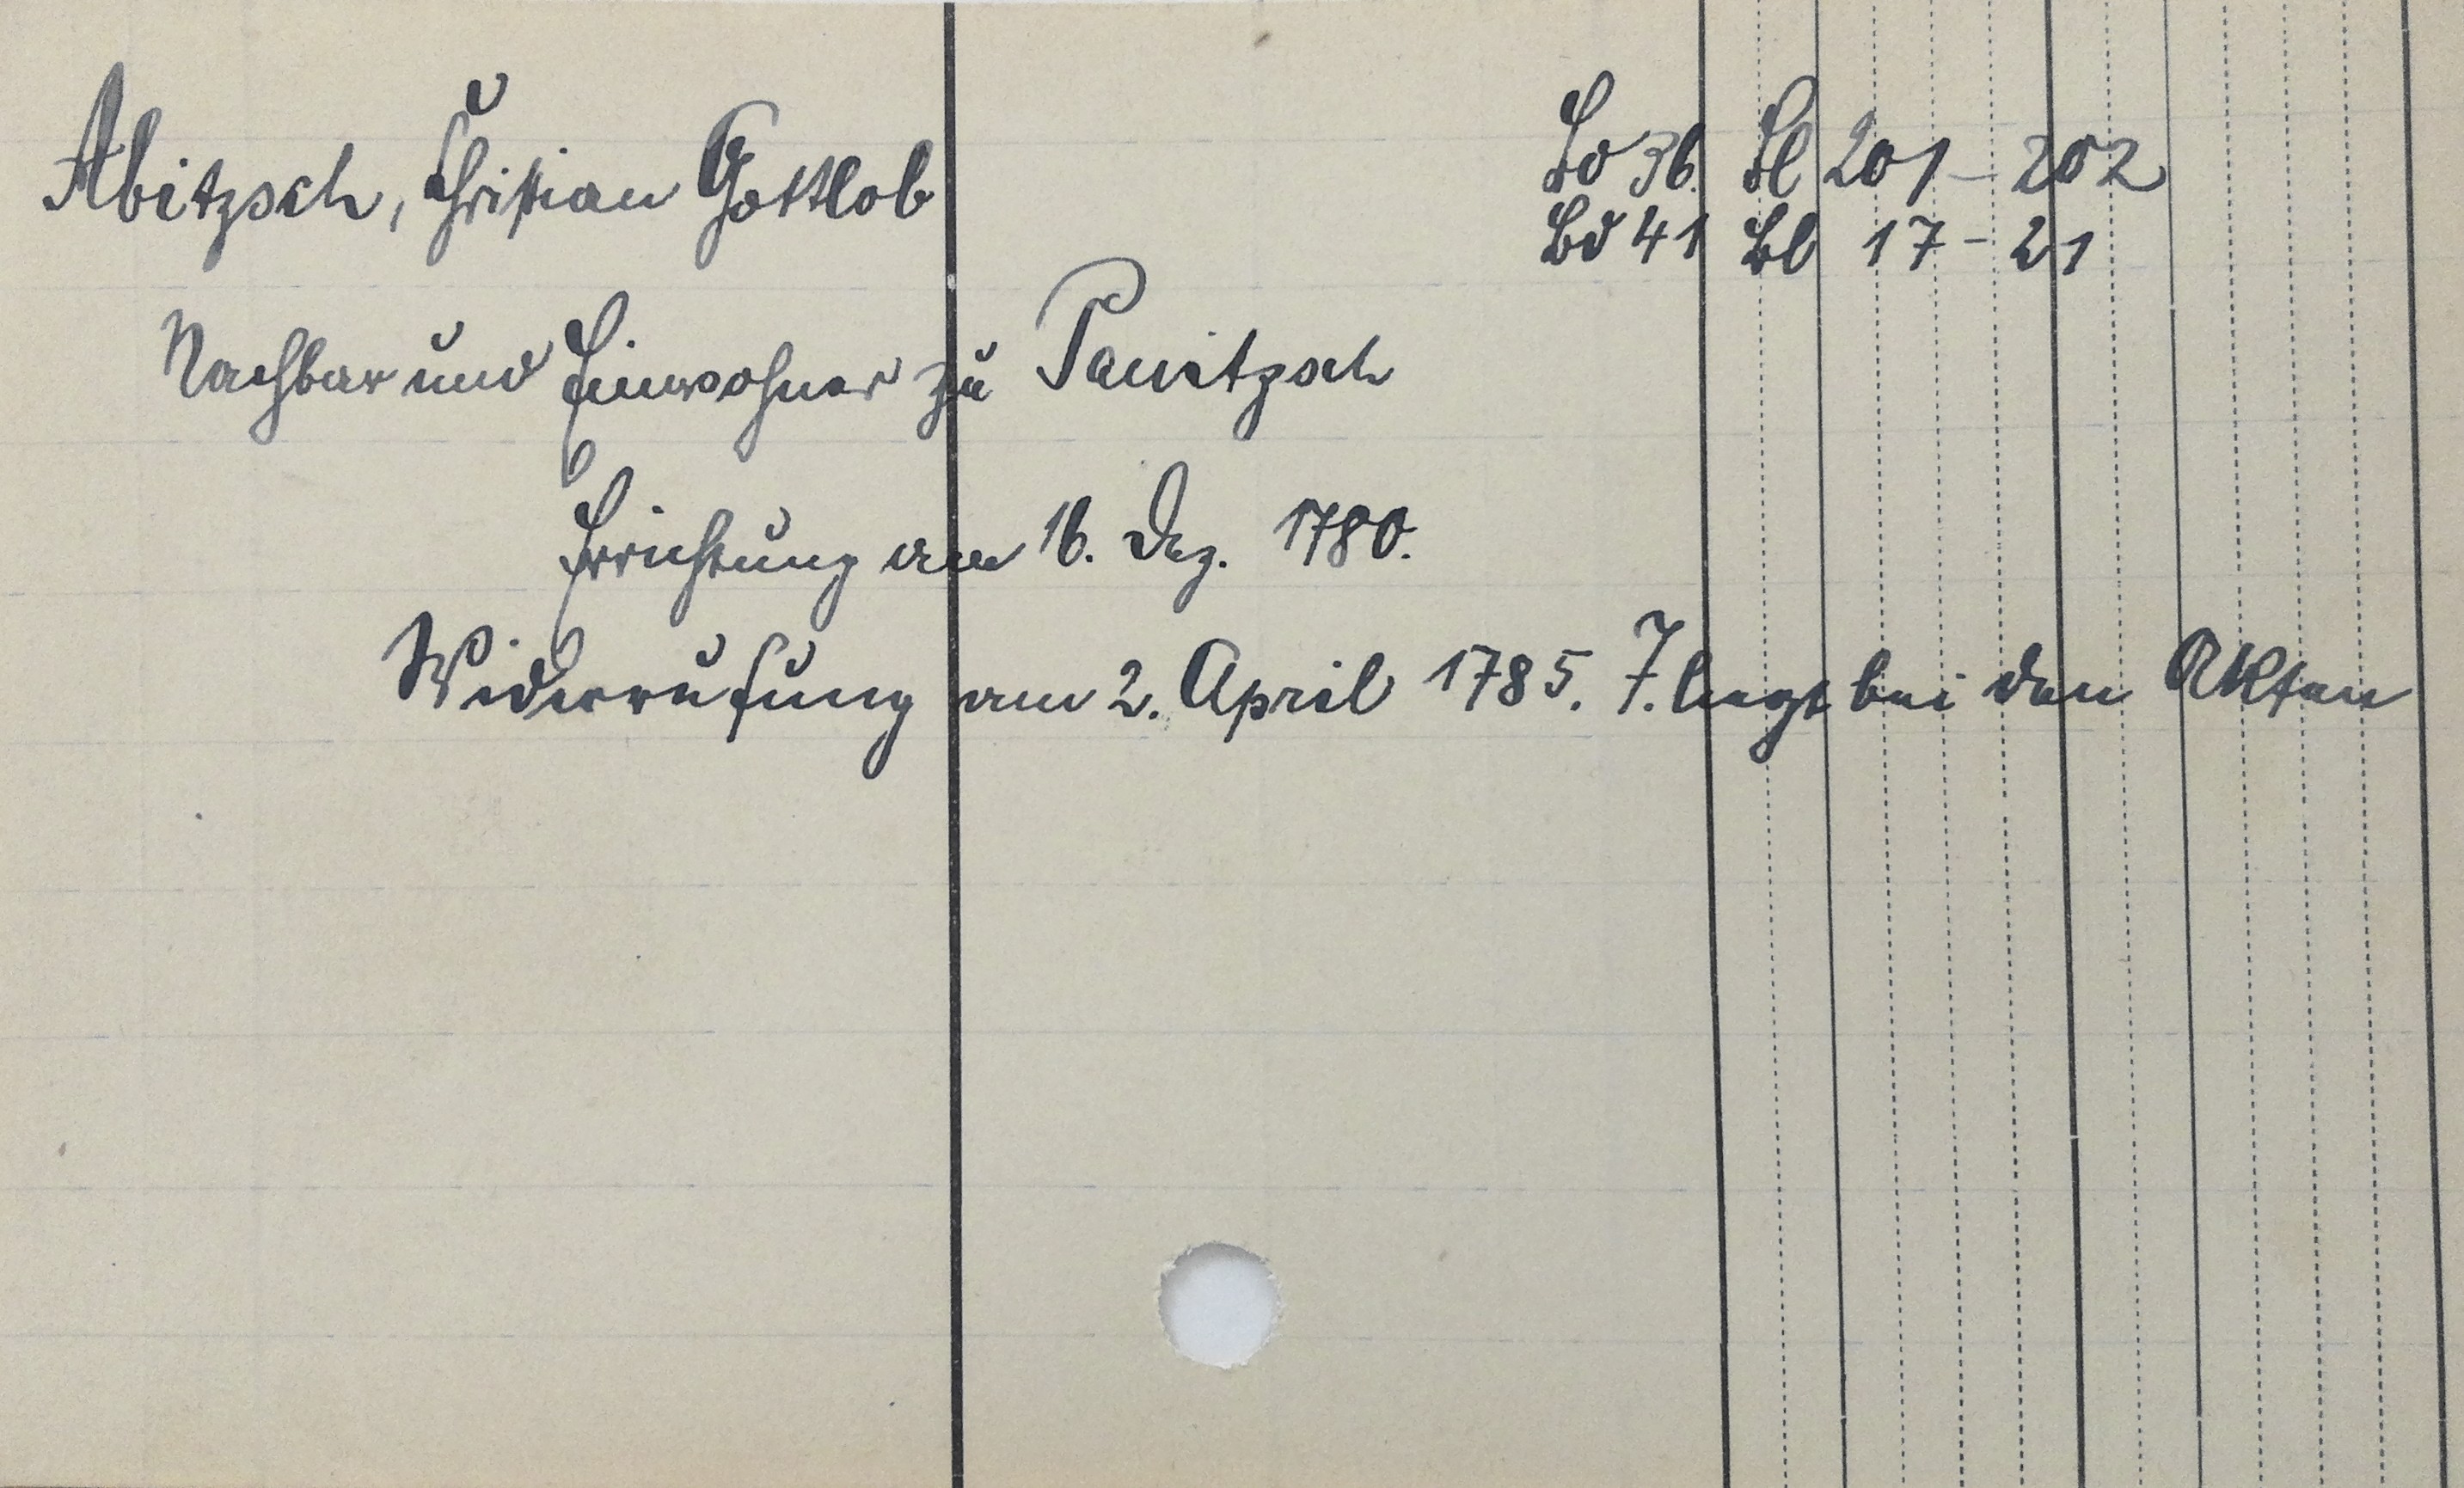 Abitzsch, Christian Gottlob
Bd 36. Bl 201-202
Bd 41 Bl 17-21
Nachbar und Einwohner zu Panitzsch
Errichtung am 16. Dez. 1780.
Widerrufung am 2. April 1785. T. liegt bei den Akten